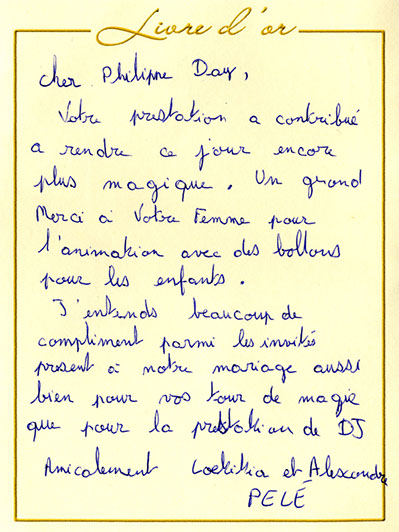 Livre d'or
Cher Philippe Day,
Votre prestation a contribué
a rendre ce jour encore
plus magique. Un grand
Merci à Votre Femme pour
l'animation avec des ballons
pour les enfants.
J'entends beaucoup de
compliment parmi les invités
present à notre mariage aussi
bien pour vos tour de magie
que pour la prestation de DJ
Amicalement Laetitia et Alexandre
PELÉ